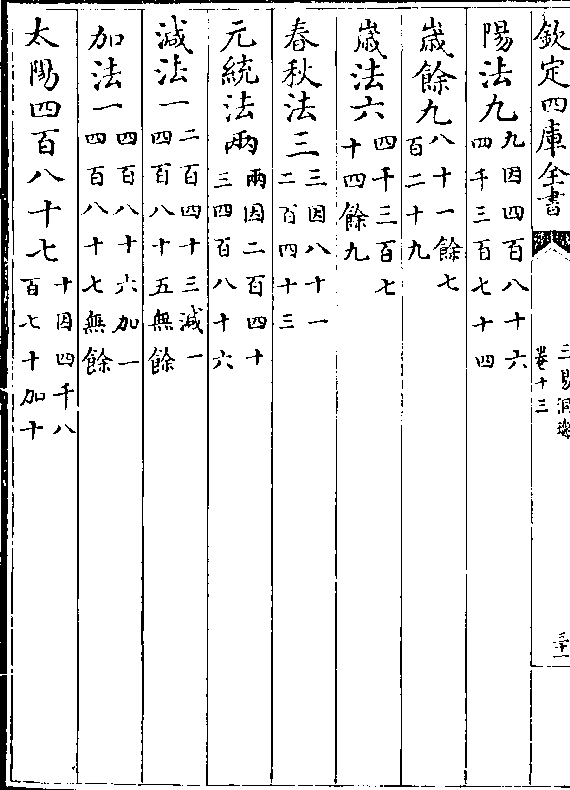 欽定四庫全書
三易洞璣
卷十三
陽法九
九因四百八十六
四千三百七十四
嵗餘九
八十一餘七
百二十九
嵗法六
四千三百七
十四餘九
春秋法三
三因八十一
二百四十三
元統法兩
兩因二百四十
三四百八十六
減法一
二百四十三減一
四百八十五無餘
加法一
四百八十六加一
四百八十七無餘
太陽四百八十七
十因四千八
百七十加十